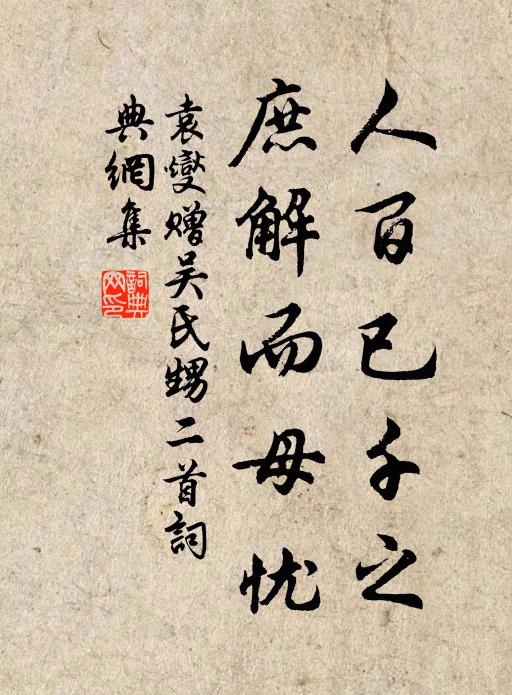 人百已千之
庶解而母忧
袁燮赠吴氏甥二首詞
典網集
詞典
网印